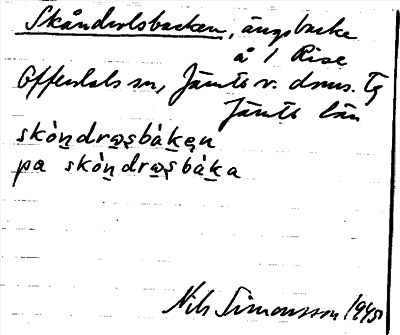 Skåndrolsbacken, ängsbacke
å 1 Rise
Offerdals sn, Jämts v. doms. tg
Jämts län
skòndrəsbàken
pa skòndrəsbàka
Nils Simonsson 1945